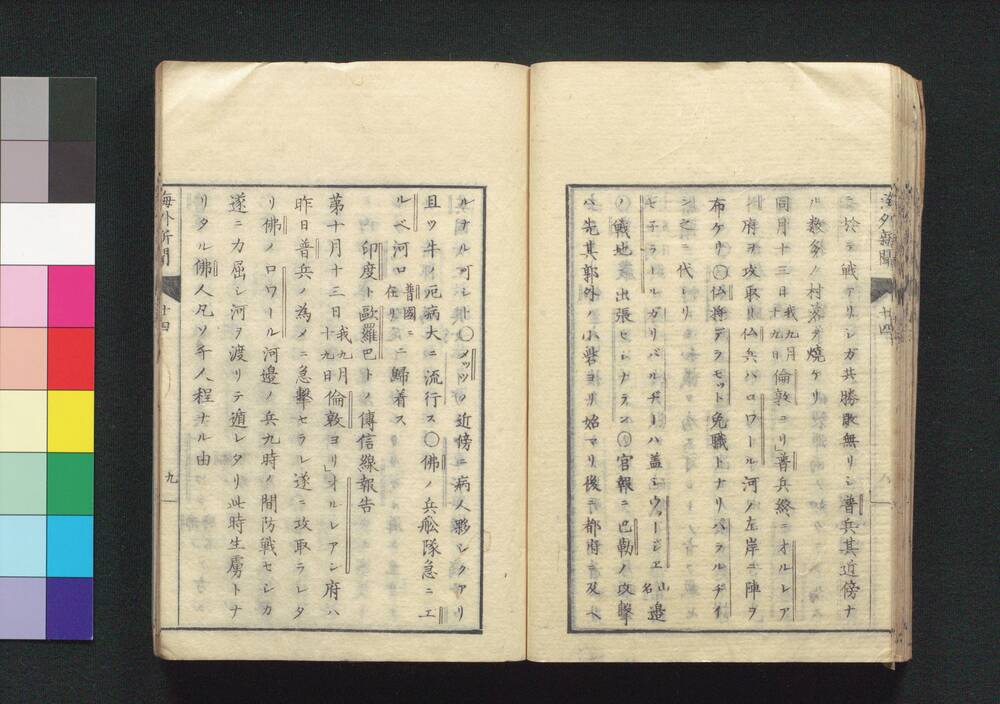 海外新聞 廿四
ニ於テ戦アリシガ共勝敗無リシ普兵其近傍ナ
ル数多ノ村落ヲ焼ケリ
同月十三日我九月十九日倫敦ヨリ」普兵終ニオルレア
府ヲ攻取リ仏兵ハロワール河ノ左岸ニ陣ヲ
布ケリ〇仏将デラモット免職トナリパラルヂイ
ン之ニ代レリ
ゼ子ラールガリバルヂーハ盖シウォージエ山名邉
ノ戦地ニ出張セシナラン〇官報ニ巴勒ノ攻撃
ハ先其郭外ノ小砦ヨリ始マリ後ニ都府ニ及ヘ
ルナル可シト〇メッツノ近傍ニ病人夥シクアリ
且ツ牛疫病大ニ流行ス〇佛ノ兵舩隊急ニエ
ルベ河口普國ニ在リニ歸着ス
印度ト歐羅巴トノ傳信線報告
第十月十三日我九月十九日倫敦ヨリ」オルレアン府ハ
昨日普兵ノ為メニ急擊セラレ遂ニ攻取ラレタ
リ佛ノロワール河邉ノ兵九時ノ間防戦セシカ
遂ニ力屈シ河ヲ渡リテ遁レタリ此時生虜トナ
リタル佛人凡ソ千人程ナル由
海外新聞 廿四 九